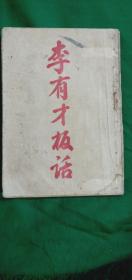 李有才板话